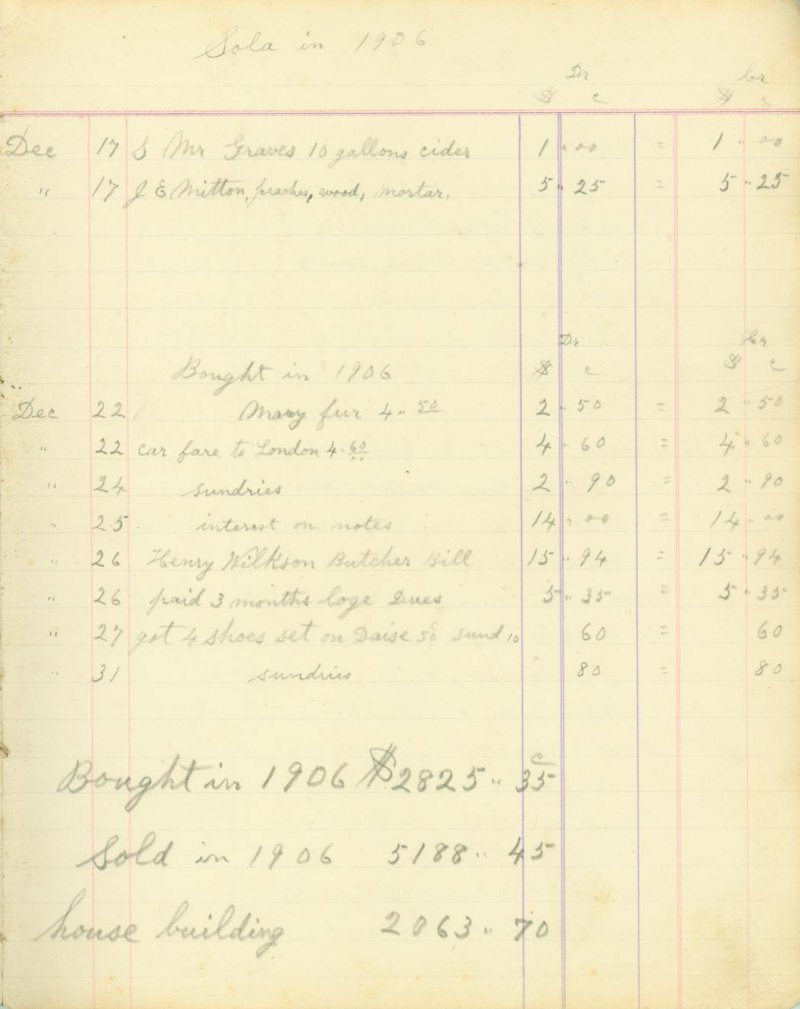 Sold in 1906
Dr Cr
$ c $ c
Dec 17 S Mr Graves 10 gallons cider 1 " 00 = 1 " 00
" 17 J E Mitton, peaches, wood, mortar. 5 " 25 = 5 " 25
Dr Cr
Bought in 1906 $ c $ c
Dec 22 Mary fur 4 " 50 2 " 50 = 2 " 50
" 22 car fare to London 4 " 60 4 " 60 = 4 " 60
" 24 sundries 2 " 90 = 2 " 90
" 25 interest on notes 14 " 00 = 14 " 00
" 26 Henry Wilkson Butcher Bill 15 " 94 = 15 " 94
" 26 paid 3 months loge Dues 5 " 35 = 5 " 35
" 27 got 4 shoes set on Daise 50 sund 10 60 = 60
" 31 sundries 80 = 80
c
Bought in 1906 $2825 " 35
Sold in 1906 5188 " 45
house building 2063 " 70